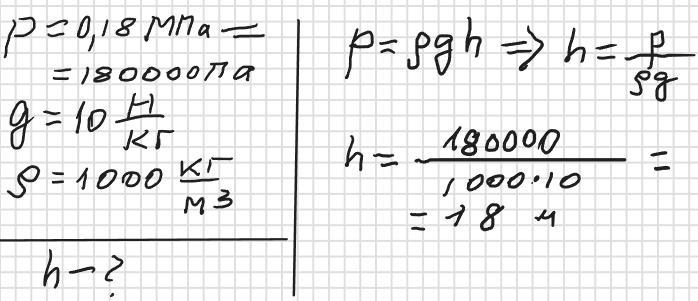 p = 0,18 МПа =
= 180000 Па
g = 10 Н/кг
ρ = 1000 кг/м³
h - ?
p = ρgh ⇒ h = p/ρg
h = 180000/1000·10 =
= 18 м